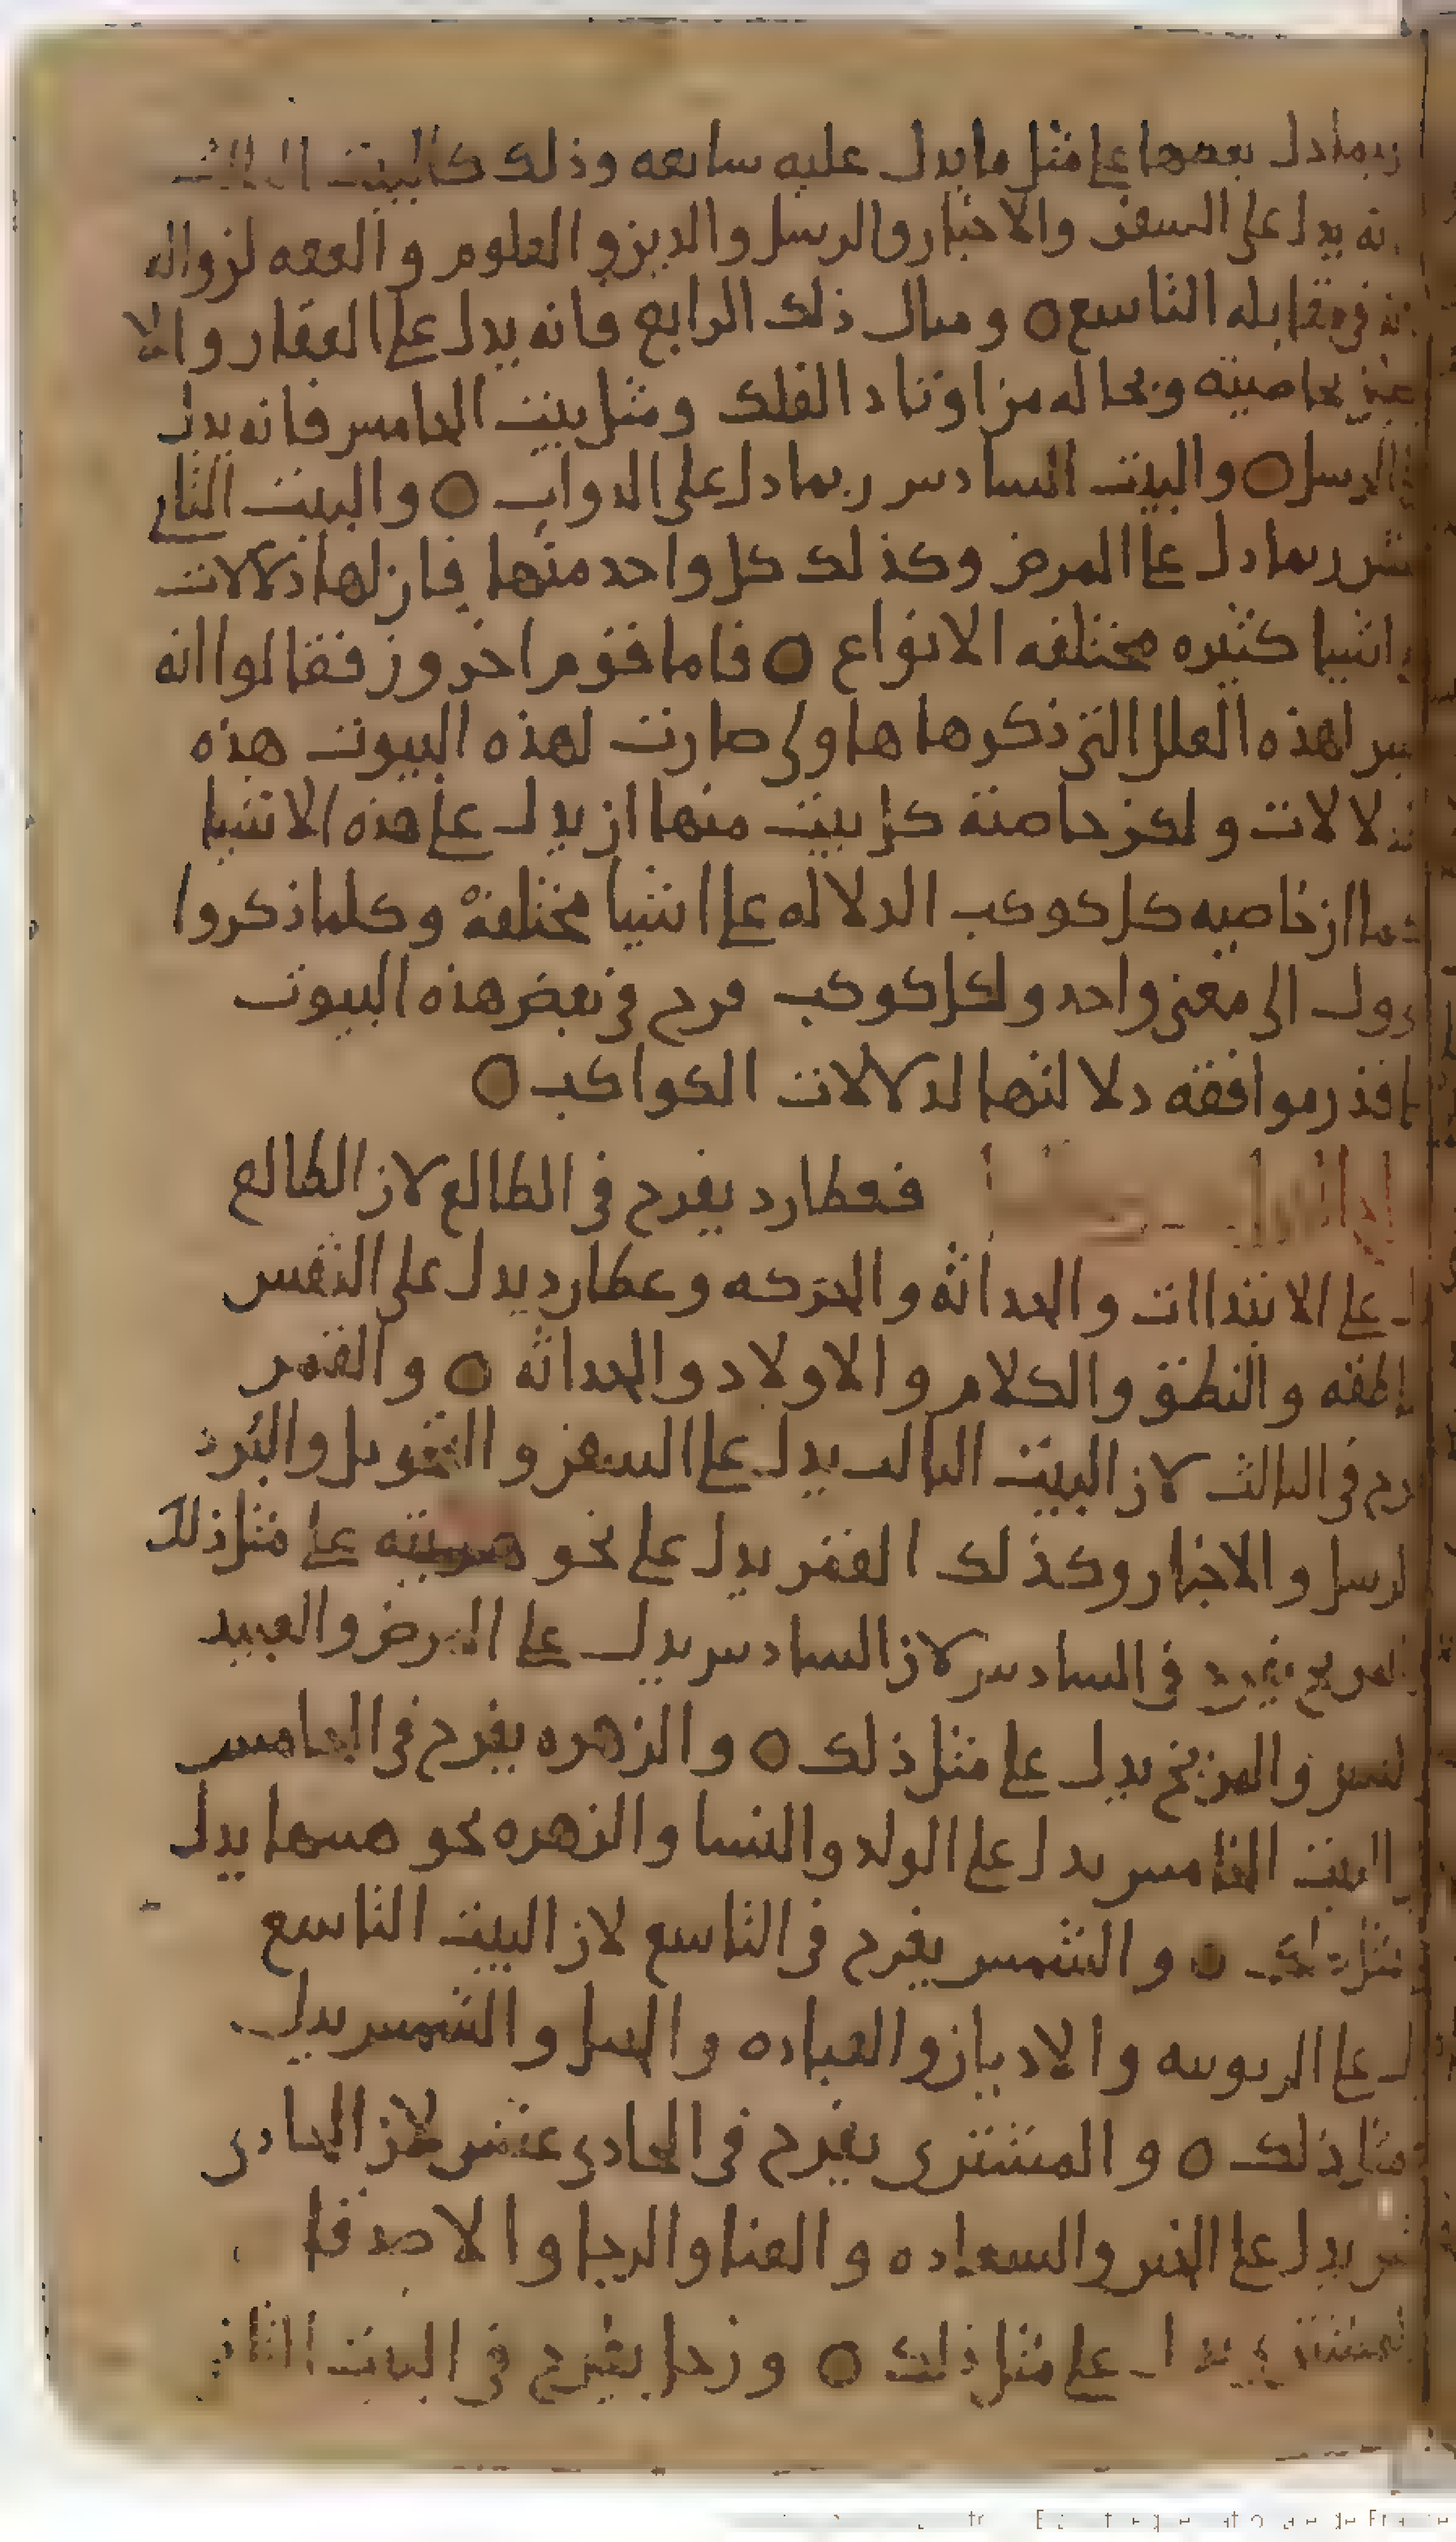 ربما دل بعضها على مثل ما يدل عليه سابعه وذلك كالبيت الثالث
انه يدل على السفر والاخبار والرسل والدين والعلوم والفقه لزواله
انه في مقابله التاسع ٥ ومثال ذلك الرابع فانه يدل على العقار والا
بخاصيته وبحاله من اوتاد الفلك ومثل بيت الخامس فانه يدل
الرسل ٥ والبيت السادس ربما دل على الدواب ٥ والبيت الثاني
عشر ربما دل على المرض وكذلك كل واحد منها فان لها دلالات
اشيا كثيره مختلفه الانواع ٥ فاما قوم اخرون فقالوا انه
ليس لهذه العلل التي ذكرها هاولى صارت لهذه البيوت هذه
الدلالات ولكن خاصية كل بيت منها ان يدل على هذه الاشيا
كما ان خاصيه كل كوكب الدلاله على اشيا مختلفة وكلما ذكروا
يوول الى معنى واحد ولكل كوكب فرح في بعض هذه البيوت
قدر موافقه دلالتها لدلالات الكواكب ٥
فعطارد يفرح في الطالع لان الطالع
يدل على الابتداات والحداثه والحركه وعطارد يدل على النفس
الناطقه والنطق والكلام والاولاد والحداثه ٥ والقمر
يفرح في الثالث لان البيت الثالث يدل على السفر والتحويل والبرد
الرسل والاخبار وكذلك القمر يدل على نحو على مثل ذلك
والمريخ يفرح في السادس لان السادس يدل على المرض والعبيد
والمريخ يدل على مثل ذلك ٥ والزهره يفرح في الخامس
والبيت الخامس يدل على الولد والنسا والزهره نحو يدل
مثل ذلك ٥ والشمس يفرح في التاسع لان البيت التاسع
يدل على الربوبيه والاديان والعباده والشمس يدل
مثل ذلك ٥ والمشتري يفرح في الحادي عشر لان الحادي
عشر يدل على الخير والسعاده والغنا والرجا والاصدقا
المشتري يدل على مثل ذلك ٥ وزحل يفرح في البيت الثاني